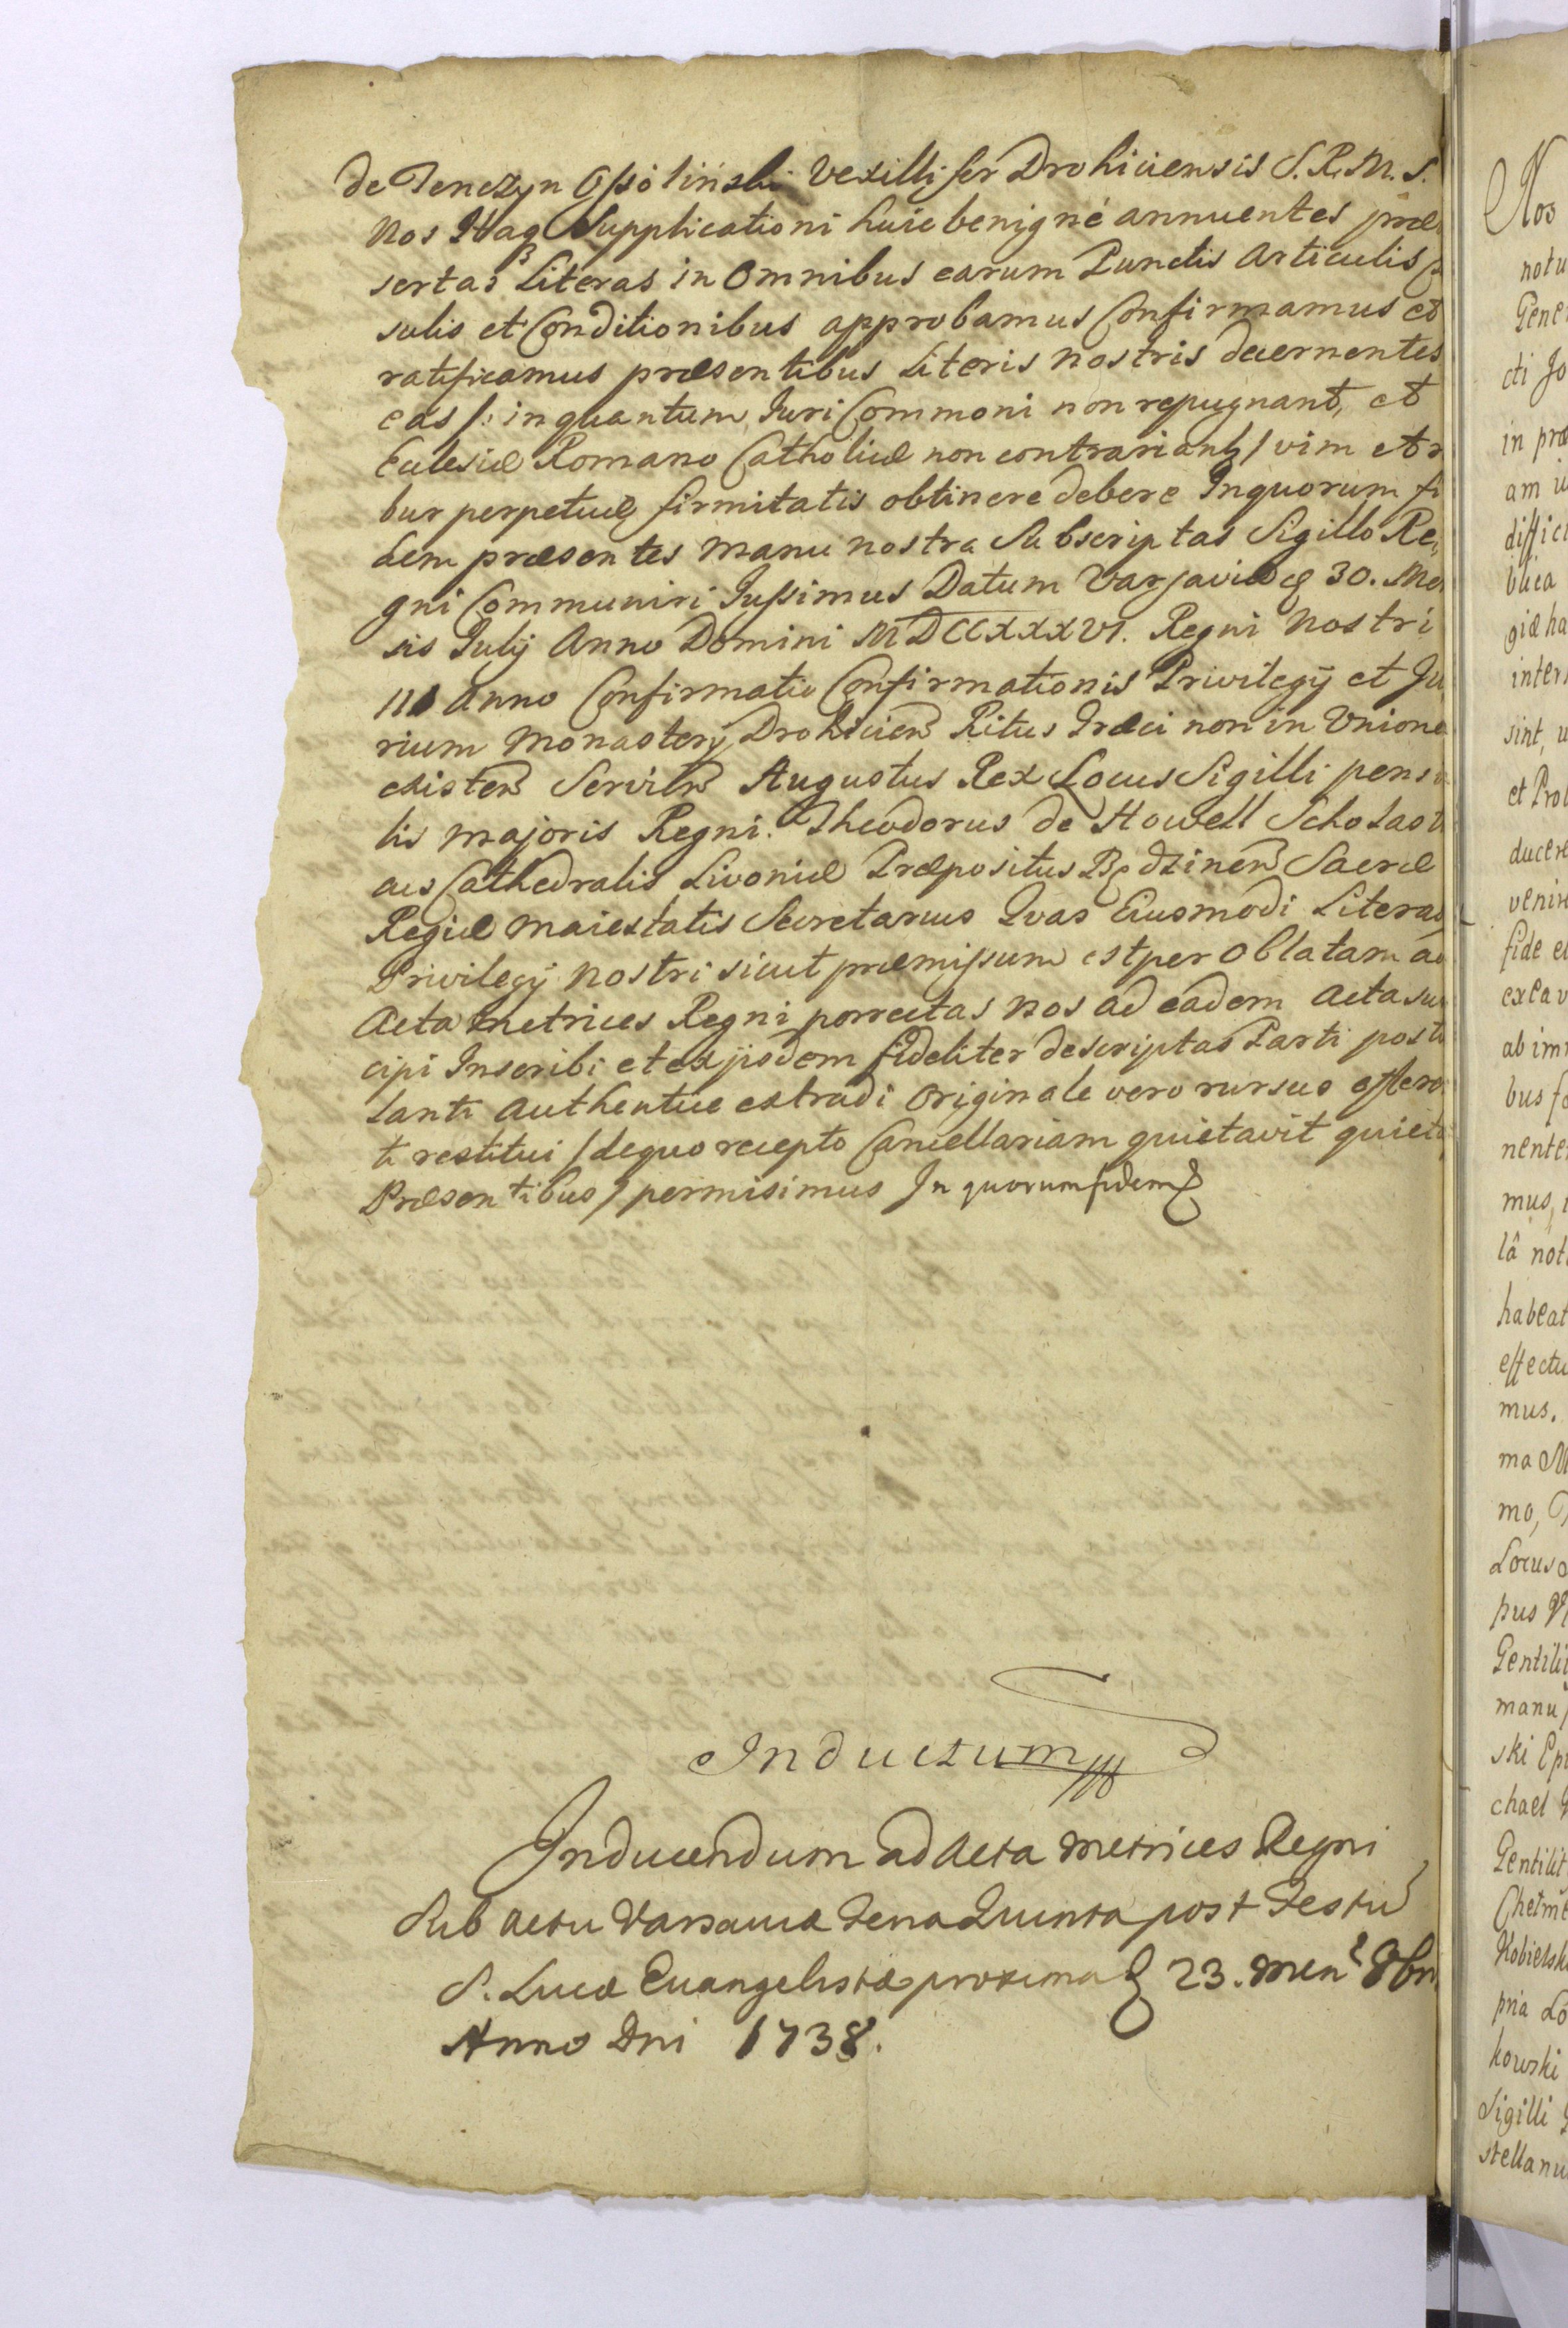 de Tenczyn Ossoliński Vexillifer Drohiciensis S. R. M. S.
Nos Itaq Supplicationi huic benigné annuentes præ
sertas Literas in Omnibus earum Punctis Articulis
sulis et Conditionibus approbamus Confirmamus et
ratificamus præsentibus Literis nostris decernentes
eas /: in quantum Juri Commoni non repugnant, et
Eulesiæ Romano Catholicæ non contrariant / vim et r
bur perpetuæ firmitatis obtinere debere Inquorum fi
dem præsentes manu nostra Subscriptas Sigillo Re,
gni Communiri Jussimus Datum Varsaviæ 30. Me
sis Julij Anno Domini MDCCXXXVI. Regni Nostri
III Anno Confirmatio Confirmationis Privilegij et Ju
rium Monasterij Drohicien Ritus Græci non in Unione
existen Servien Augustus Rex Locus Sigilli pensi
lis majoris Regni. Theodorus de Howell Scholast
cus Cathedralis Livoniæ Præpositus Będzinen Sacræ
Regiæ Maiestatis Secretarius Qvas Eiusmodi Literas
Privilegij Nostri sicut præmissum est per Oblatam ad
Acta Metrices Regni porrectas Nos ad eadem Acta sus
cipi Inscribi et ex ijsdem fideliter descriptas Parti postu
lanti Authentice extradi Originale vero rursus offeren
ti restitui / dequo recepto Cancellariam quietavit quiet
Præsentibus / permisimus In quorum fidem
Inductum
Inducendum ad Acta Metrices Regni
Sub actu Varsaviæ Feria Quinta post Festu
S. Lucæ Euangelistæ proxima 23. Men 8br
Anno Dni 1738.
Nos
notu
Gene
cti Jo
in præ
am i
diffici
blica
giæ ha
inter
sint, u
et Pro
ducere
venire
fide e
excav
ab im
bus f
nente
mus,
lâ not
habeat
effectu
mus.
ma M
mo,
Locus
pus
Gentili
manu
ski Ep
chael
Gentilit
Chełm
Kobielsk
pria Lo
kowski
Sigilli
stellanu